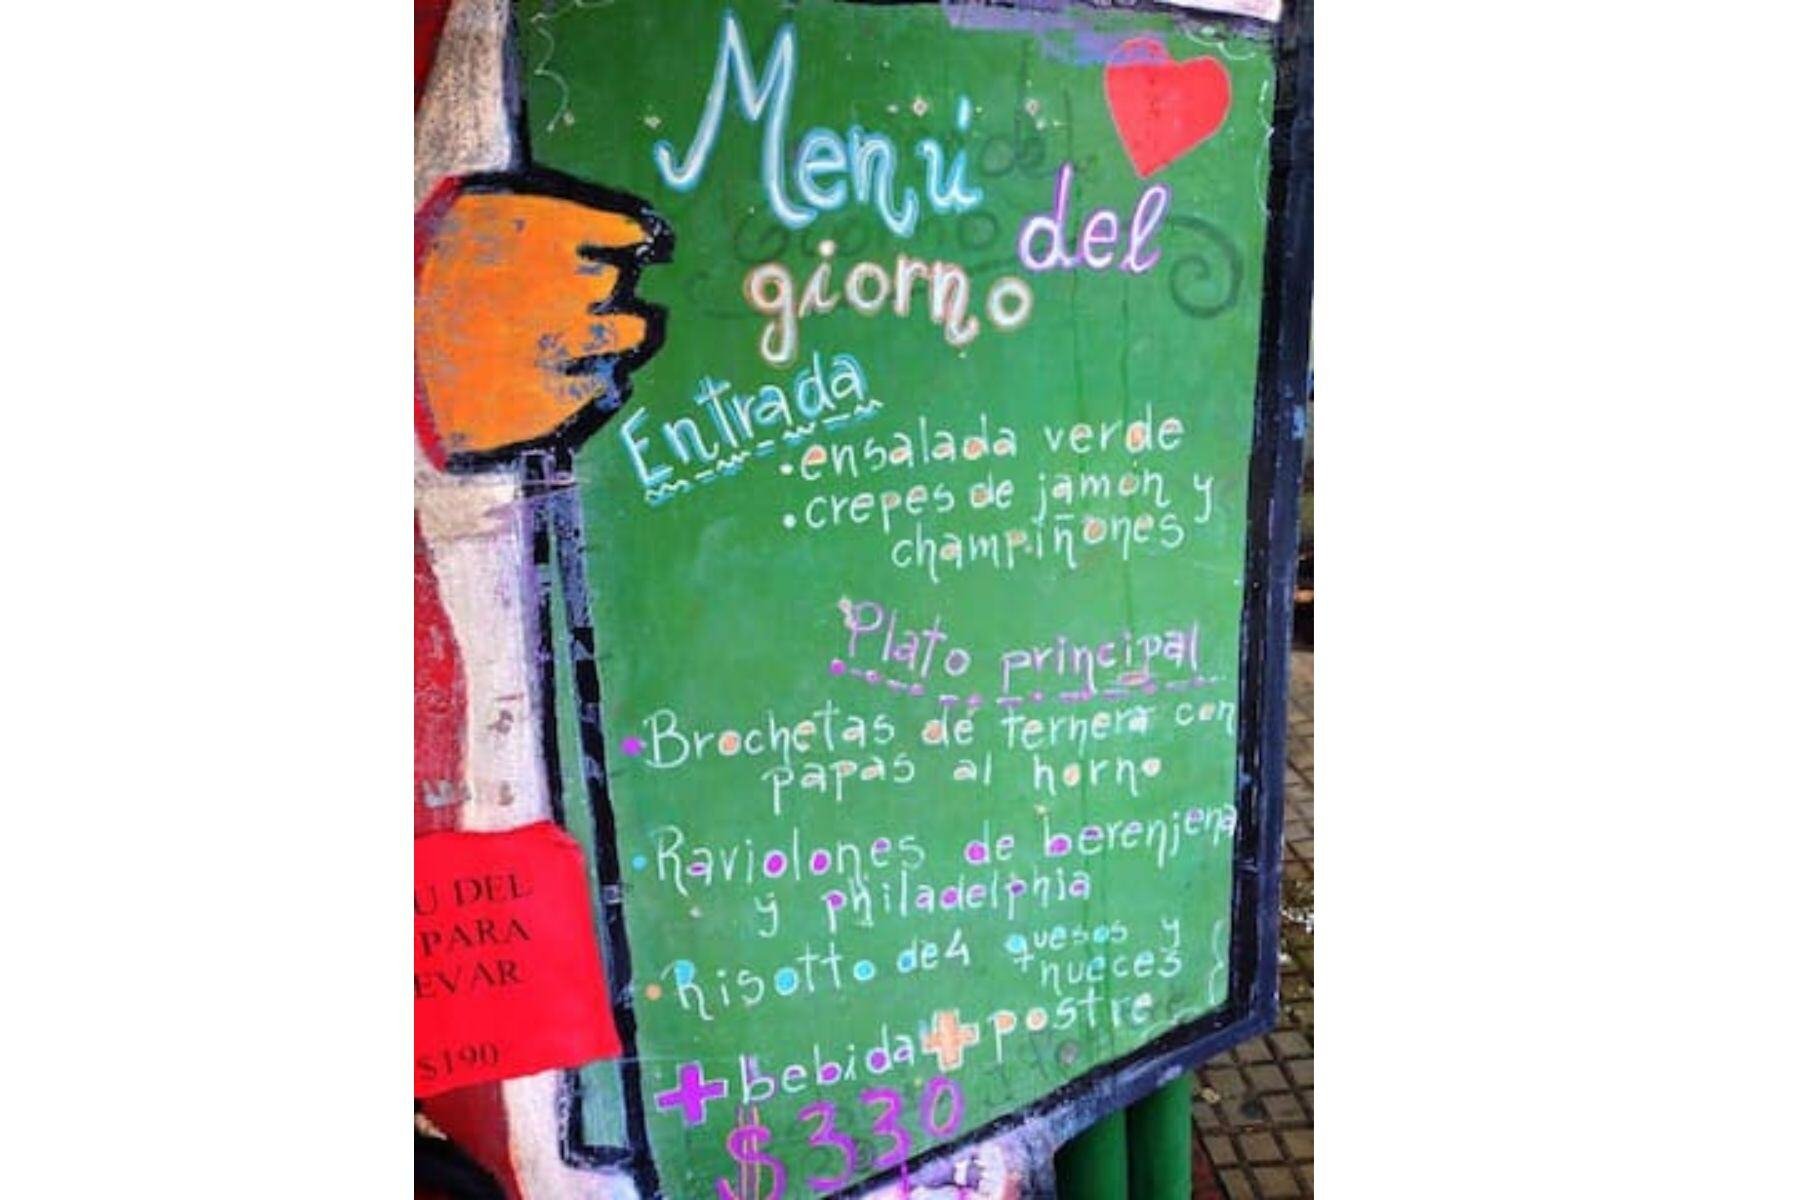 Menú
del
giorno
Entrada
•ensalada verde
•crepes de jamón y
champiñones
Plato principal
•Brochetas de ternera con
papas al horno
•Raviolones de berenjena
y philadelphia
•Risotto de 4 quesos y
nueces
+bebida+postre
$330
U DEL
PARA
EVAR
$190